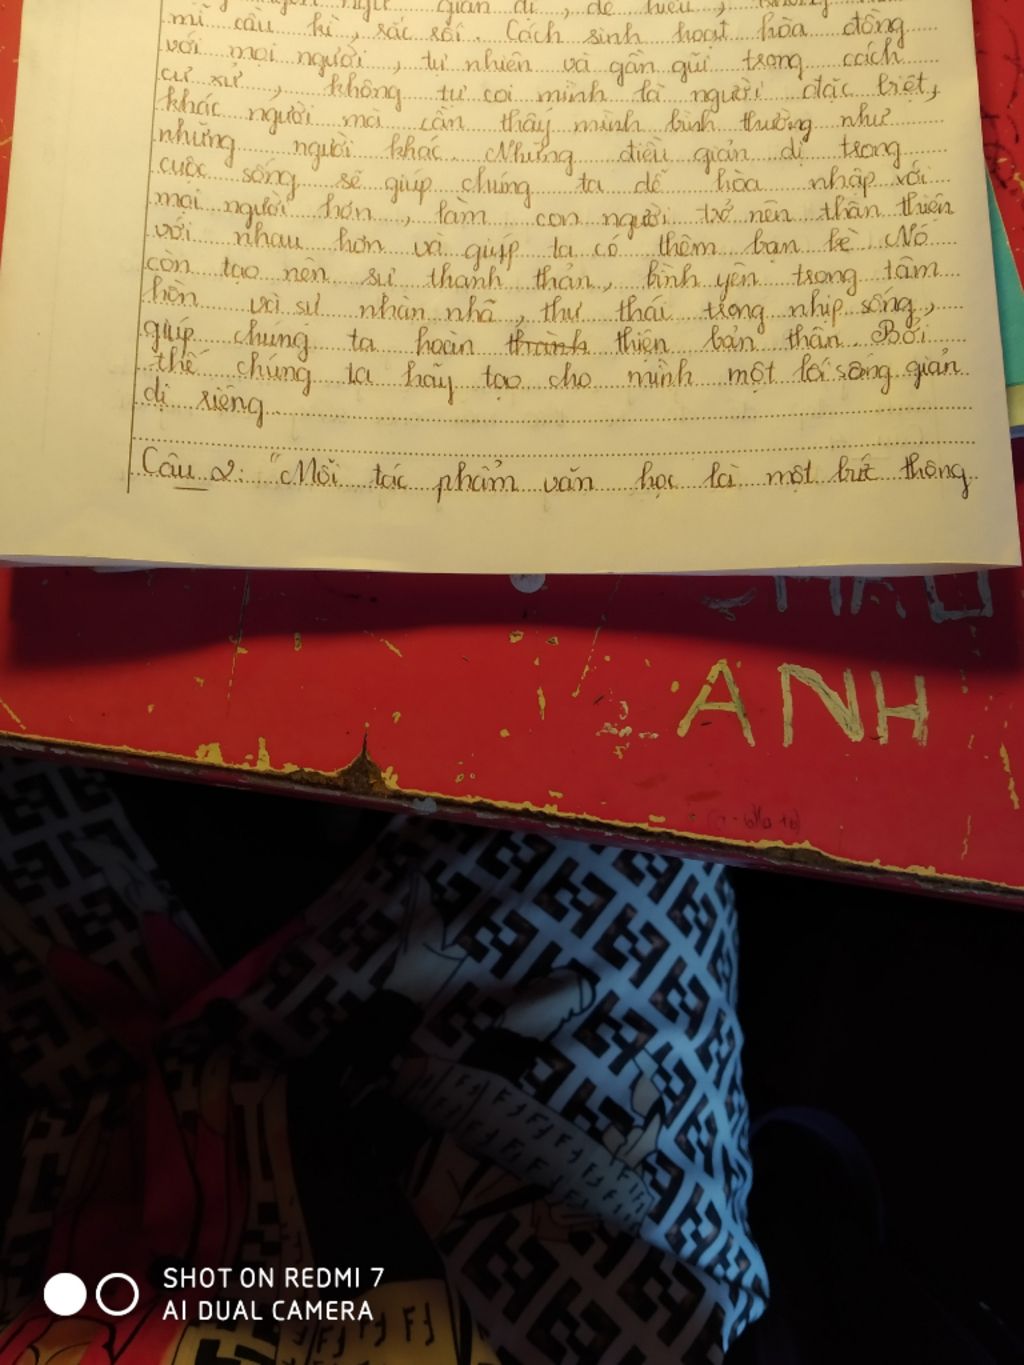 giản dị, dễ hiểu,
mĩ cầu kì, sắc sối. Cách sinh hoạt hòa đồng
với mọi người, tự nhiên và gần gũi trong cách
cư xử, không tự coi mình là người đặc biệt,
khác người mà cần thấy mình bình thường như
những người khác. Những điều giản dị trong
cuộc sống sẽ giúp chúng ta dễ hòa nhập với
mọi người hơn, làm con người trở nên thân thiện
với nhau hơn và giúp ta có thêm bạn bè. Nó
còn tạo nên sự thanh thản, bình yên trong tâm
hồn và sự nhàn nhã, thư thái trong nhịp sống,
giúp chúng ta hoàn thành thiện bản thân. Bởi
thế chúng ta hãy tạo cho mình một lối sống giản
dị riêng.
Câu 2: "Mỗi tác phẩm văn học là một bức thông
ANH
SHOT ON REDMI 7
AI DUAL CAMERA